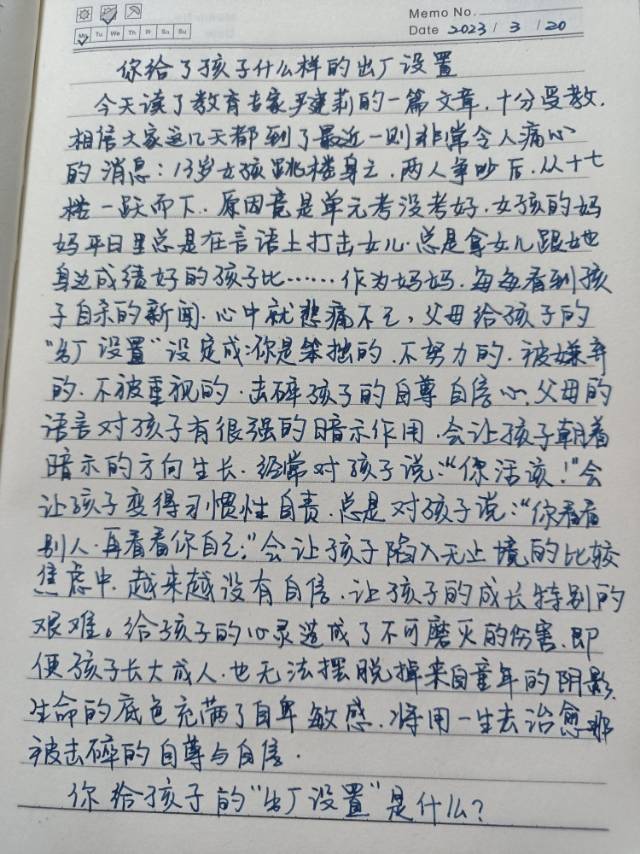 Memo No.
Mo Tu We Th Fr Sa Su
Date 2023 / 3 / 20
你给了孩子什么样的出厂设置
今天读了教育专家尹建莉的一篇文章,十分受教,
相信大家这几天都到了最近一则非常令人痛心
的消息:13岁女孩跳楼身亡,两人争吵后,从十七
楼一跃而下.原因竟是单元考没考好,女孩的妈
妈平日里总是在言语上打击女儿.总是拿女儿跟她
身边成绩好的孩子比……作为妈妈,每每看到孩
子自杀的新闻,心中就悲痛不已,父母给孩子的
“出厂设置”设定成:你是笨拙的,不努力的,被嫌弃
的,不被重视的.击碎孩子的自尊自信心,父母的
语言对孩子有很强的暗示作用,会让孩子朝着
暗示的方向生长.经常对孩子说:“你活该!”会
让孩子变得习惯性自责,总是对孩子说:“你看看
别人,再看看你自己;”会让孩子陷入无止境的比较
焦虑中,越来越没有自信,让孩子的成长特别的
艰难。给孩子的心灵造成了不可磨灭的伤害,即
便孩子长大成人,也无法摆脱掉来自童年的阴影,
生命的底色充满了自卑敏感,将用一生去治愈那
被击碎的自尊与自信.
你给孩子的“出厂设置”是什么?